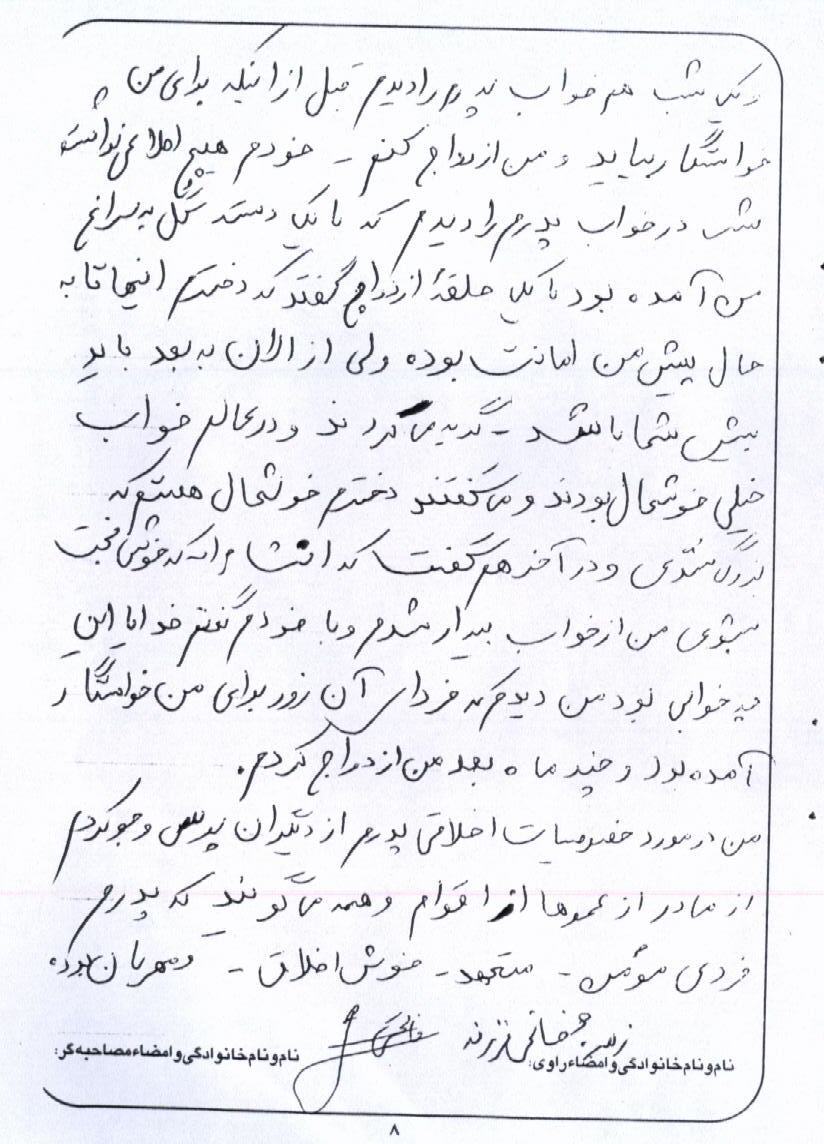 و یک شب هم خواب پدرم را دیدم قبل از اینکه برای من
خواستگار بیاید و من ازدواج کنم - خودم هیچ اطلاعی نداشتم
شب در خواب پدرم را دیدم که با یک دسته گل به سراغ
من آمده بود با یک حلقهٔ ازدواج گفتند که دخترم اینها تا به
حال پیش من امانت بوده ولی از الان به بعد باید
پیش شما باشد - گریه می‌کردند و در عالم خواب
خیلی خوشحال بودند و می‌گفتند دخترم خوشحال هستم که
بزرگ شدی و در آخر هم گفت که انشاءالله که خوشبخت
بشوی من از خواب بیدار شدم و با خودم گفتم خدایا این
چه خوابی بود من دیدم که فردای آن روز برای من خواستگار
آمده بود و چند ماه بعد من ازدواج کردم.
من در مورد خصوصیات اخلاقی پدرم از دیگران پرس و جو کردم
از مادر از عموها از اقوام و همه می‌گویند که پدرم
فردی مؤمن - متعهد - خوش اخلاق - و مهربان بوده
نام و نام خانوادگی و امضاء راوی:
نام و نام خانوادگی و امضاء مصاحبه گر:
۸